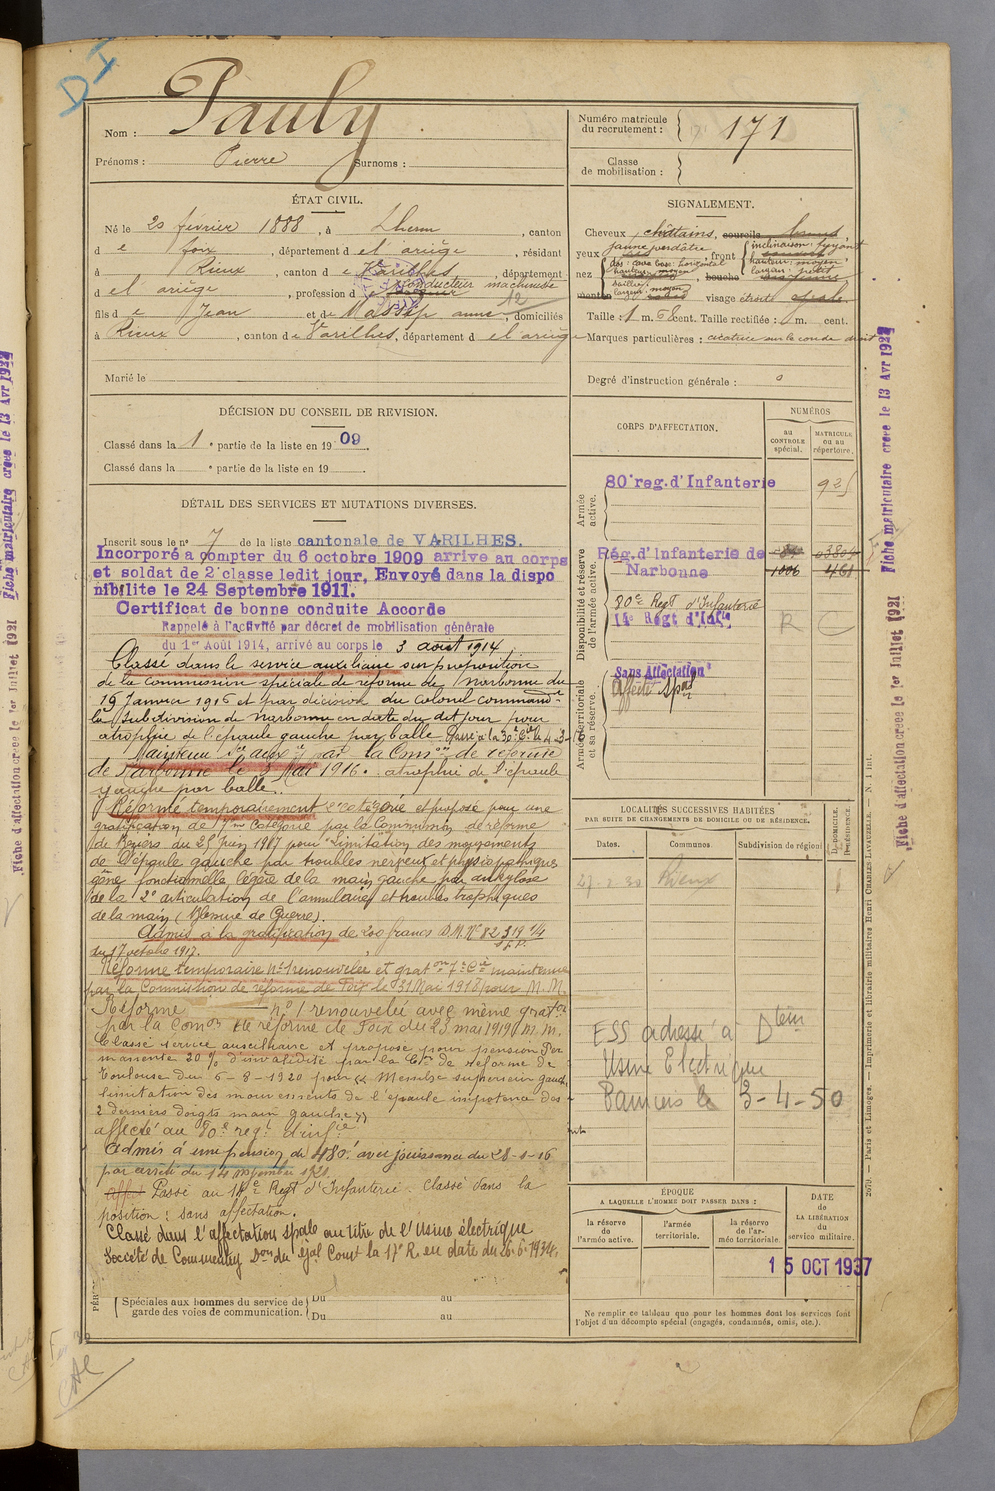 D I
Nom : Pauly
Prénoms : Pierre Surnoms :
Numéro matricule
du recrutement : 171
Classe
de mobilisation :
ÉTAT CIVIL.
Né le 20 février 1888, à Lherm, canton
d e foix, département d el ariège, résidant
à Rieux, canton d e Varilhes, département
d el ariège, profession d e conducteur machiniste
12
fils d e Jean et de Massip anne, domiciliés
à Rieux, canton d e Varilhes, département d el ariège
Marié le
SIGNALEMENT.
Cheveux châtains, sourcils bruns
yeux jaune verdâtre, front inclinaison: fuyant
hauteur: moyen
largeur: petit
nez dos: cave base: horizontal
hauteur: moyen
saillie:
largeur: moyen
bouche
menton visage étroit ovale.
Taille : 1 m. 68 cent. Taille rectifiée : 1 m. cent.
Marques particulières : cicatrice sur le coude droit
Degré d'instruction générale : 0
DÉCISION DU CONSEIL DE REVISION.
Classé dans la 1e partie de la liste en 1909.
Classé dans la e partie de la liste en 19
DÉTAIL DES SERVICES ET MUTATIONS DIVERSES.
Inscrit sous le no 7 de la liste cantonale de VARILHES.
Incorporé a compter du 6 octobre 1909 arrive au corps
et soldat de 2e classe ledit jour. Envoyé dans la dispo
nibilite le 24 Septembre 1911.
Certificat de bonne conduite Accorde
Rappelé à l'activité par décret de mobilisation générale
du 1er Août 1914, arrivé au corps le 3 août 1914.
Classé dans le service auxiliaire sur proposition
de la commission spéciale de réforme de Narbonne du
19 Janvier 1916 et par décision du Colonel commandt
la subdivision de Narbonne en date du dit jour pour
atrophie de l'épaule gauche par balle. Passé à la 30e Cie le 4-3-16
Maintenu Sce auxre par la Comon de réforme
de Narbonne le 3 Mai 1916. atrophie de l'épaule
gauche par balle.
Réformé temporairement 1e catégorie et proposé pour une
gratification de 7me Catégorie par la Commission de réforme
de Béziers du 25 juin 1917 pour "Limitation des mouvements
de l'épaule gauche par troubles nerveux et physiopathiques
gêne fonctionnelle légère de la main gauche par ankylose
de la 2e articulation de l'annulaire et troubles trophiques
de la main (Blessure de Guerre).
Admis à la gratification de 200 francs D.M. No 82319 1/4
du 17 octobre 1917.
Réforme temporaire No 1 renouvelée et graton 7e Cie maintenue
par la Commission de réforme de Foix le 31 Mai 1918 pour M. M.
Réforme no 1 renouvelée avec même graton
par la Comon de réforme de Foix du 23 mai 1919 M. M.
Classé service auxiliaire et proposé pour pension Per
manente 20% d'invalidité par la Con de réforme de
Toulouse du 6-8-1920 pour Membre supérieur gauche
limitation des mouvements de l'épaule impotence des
2 derniers doigts main gauche
affecté au 80e regt d'infie
Admis à une pension de 480f avec jouissance du 28-1-16
par arrêté du 14 novembre 1921
Passé au 14e Regt d'Infanterie. Classé dans la
position: sans affectation.
Classé dans l'affectation spale au titre de l'Usine électrique
Société de Commentry Don du gal Comt la 17e R en date du 26-6-1934.
Spéciales aux hommes du service de
garde des voies de communication.
Du au
Du au
CORPS D'AFFECTATION.
NUMÉROS
au
CONTROLE
spécial.
MATRICULE
ou au
répertoire.
Armée
active.
80e reg. d'Infanterie 925
Disponibilité et réserve
de l'armée active.
Rég. d'Infanterie de
Narbonne
1006 461
80e Regt d'Infanterie
14e Regt d'Infie R C
Armée territoriale
et sa réserve.
Sans Affectation
Affecté Spal
LOCALITÉS SUCCESSIVES HABITÉES
PAR SUITE DE CHANGEMENTS DE DOMICILE OU DE RÉSIDENCE.
Dates. Communes. Subdivision de région. D. DOMICILE. R. RÉSIDENCE
27-2-30 Rieux
ESS adressé à Dteur
Usine Electrique
Pamiers le 3-4-50
ÉPOQUE
A LAQUELLE L'HOMME DOIT PASSER DANS :
la réserve
de
l'armée active.
l'armée
territoriale.
la réserve
de l'ar-
mée territoriale.
DATE
de
LA LIBÉRATION
du
service militaire.
15 OCT 1937
Ne remplir ce tableau que pour les hommes dont les services font
l'objet d'un décompte spécial (engagés, condamnés, omis, etc.).
2070. — Paris et Limoges. — Imprimerie et librairie militaires Henri CHARLES-LAVAUZELLE. — N. 1 int.
Fiche matriculaire creee le 13 Avr 1922
Fiche d'affectation creee le 1er Juillet 1921
Fiche matriculaire creee le 13 Avr 1922
Fiche d'affectation creee le 1er Juillet 1921